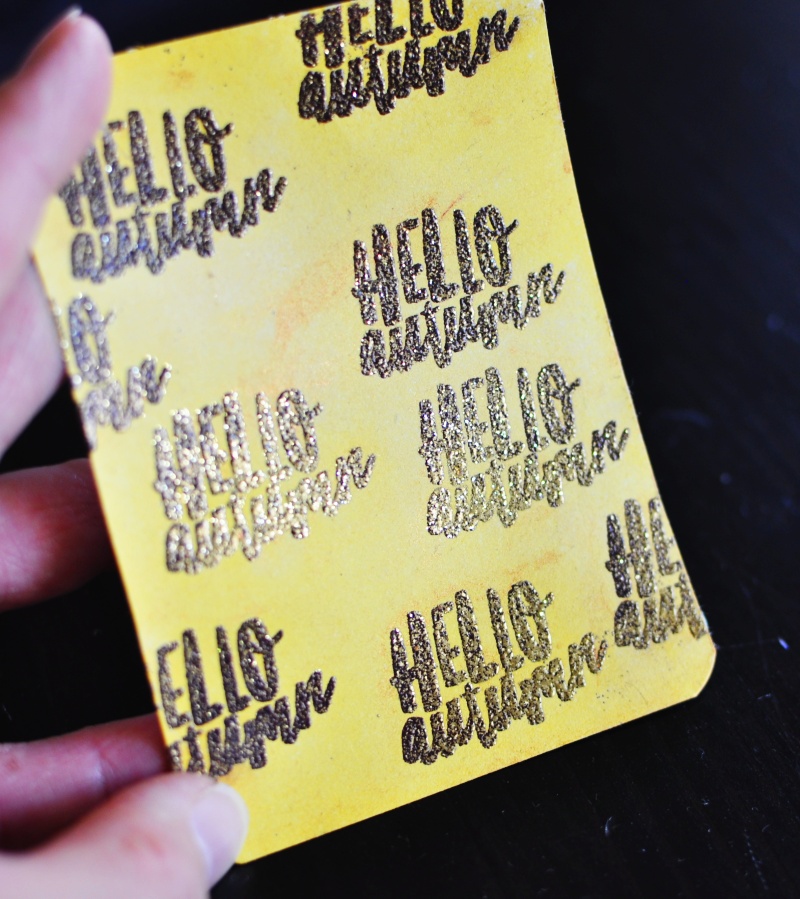 HELLO
autumn
HELLO
autumn
HELLO
autumn
LO
mn
HELLO
autumn
HELLO
autumn
HE
aut
ELLO
utumn
HELLO
autumn